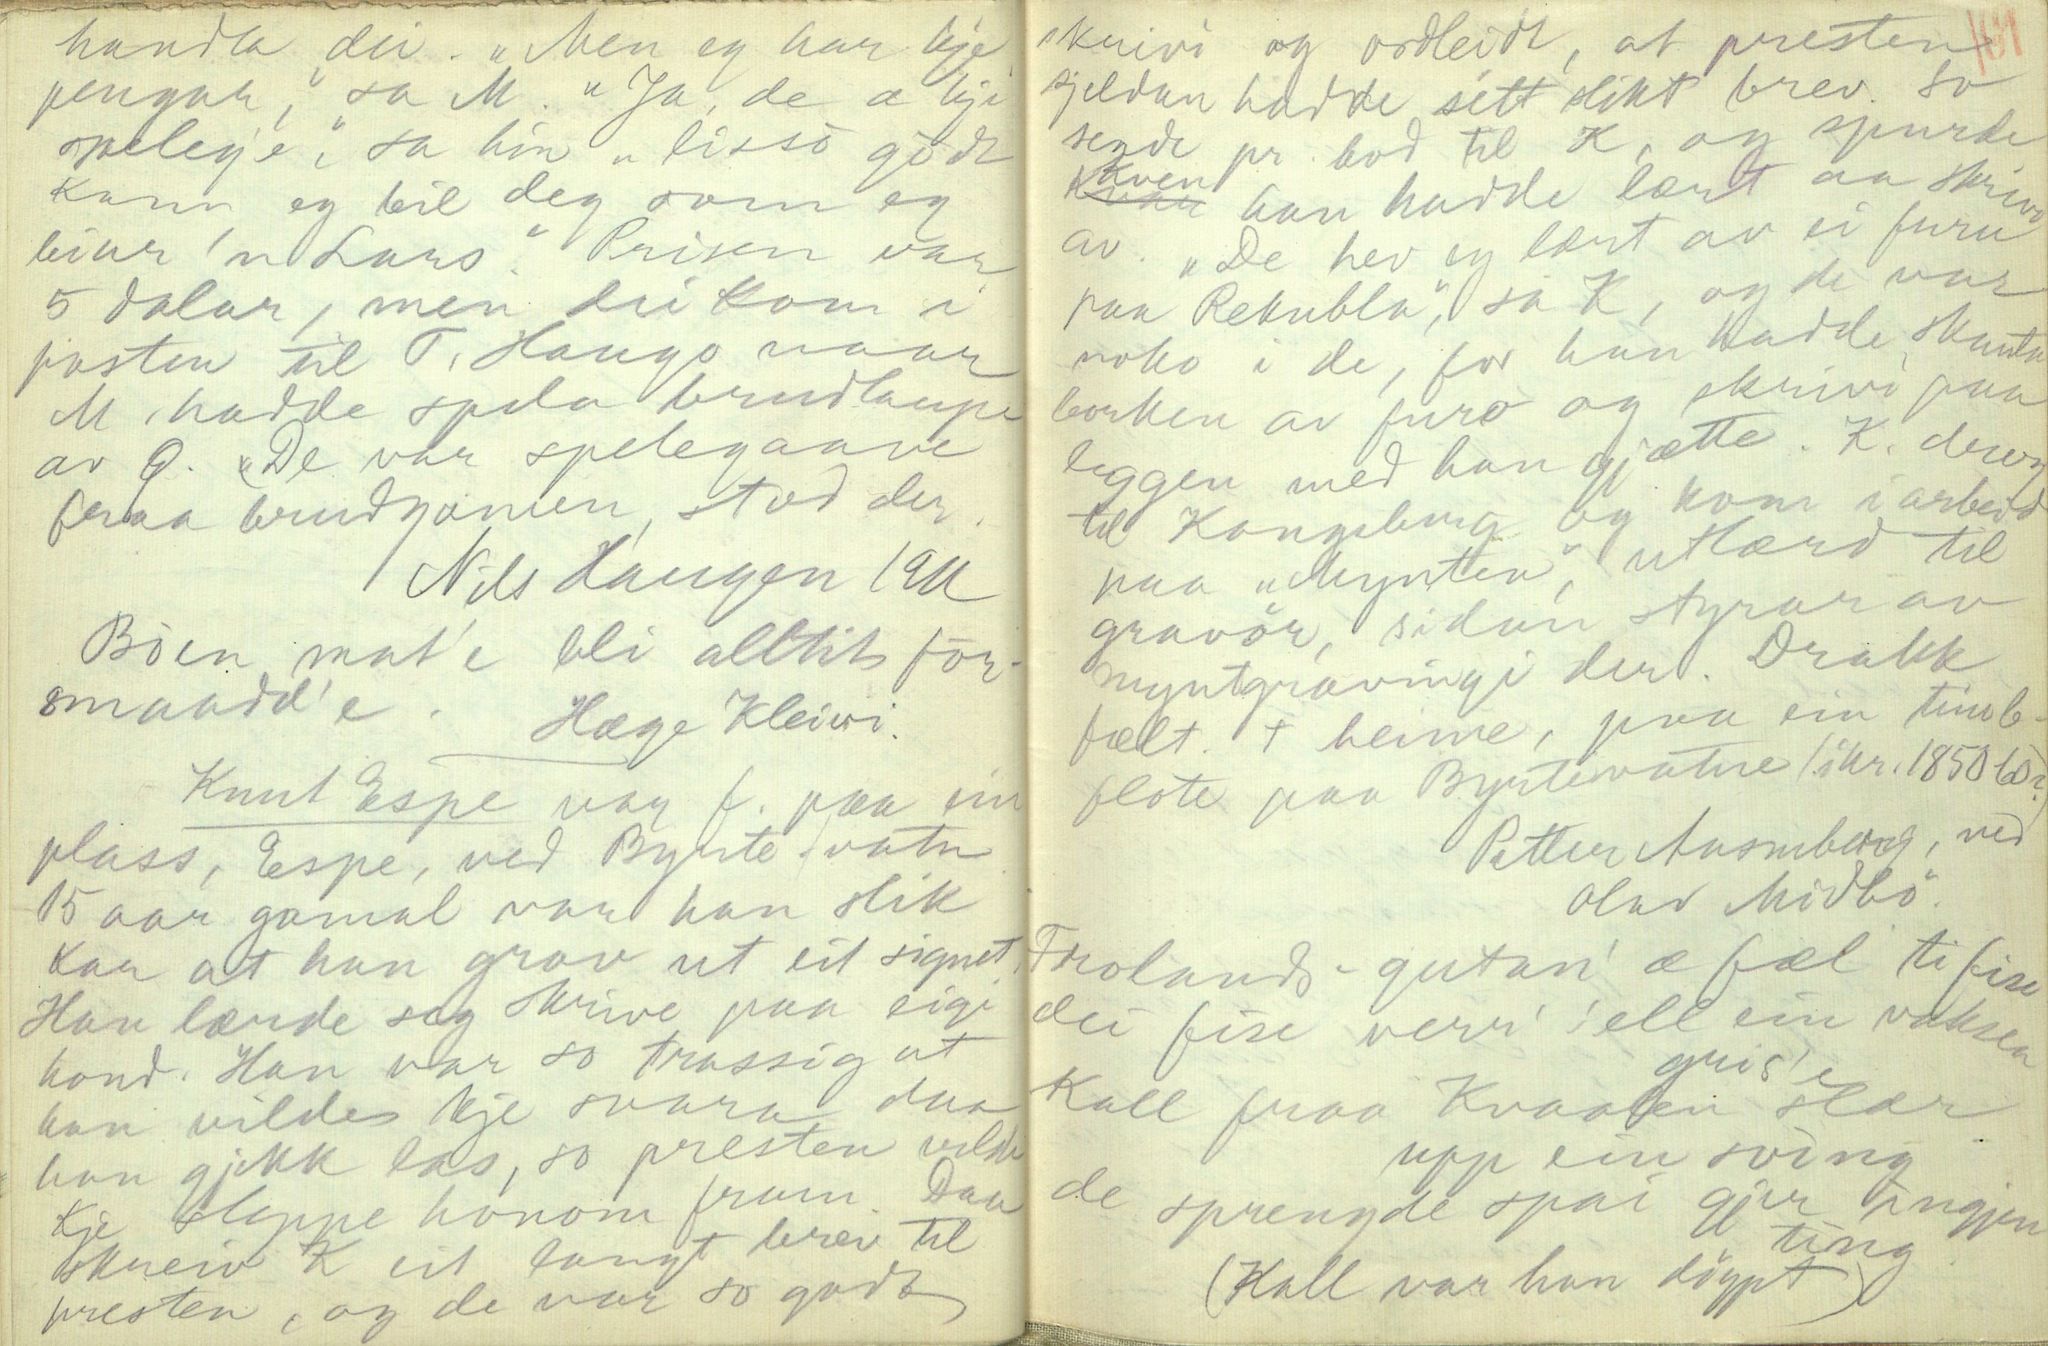 handla dei. „Men eg har kje
pengar," sa M. "Ja, de æ kje
spelegé," sa hin „lisso godt
kann eg bil deg som eg
beiar 'n Lars." Prisen var
5 dalar, men dei kom i
posten til T. Haugo naar
M. hadde spela brudlaupe
av G. „De var spelegaave
fraa brudgomen, stod der.
Nils Haugen 1911
Bòen mat'e bli alltit for-
smaadd'e.
Hæge Kleivi.
Knut Espe var f. paa ein
plass, Espe, ved Byrte-vatn
15 aar gamal var han slik
kar at han grov ut eit signet.
Han lærde seg skrive paa eigi
hond. Han var so trassig at
han vilde kje svara daa
han gjekk las, so presten vilde
kje sleppe honom fram. Daa
skreiv K eit langt brev til
presten, og de var so godt
101
skrivi og ordleidt, at presten
sjeldan hadde sétt slikt brev. So
sende pr. bod til K, og spurde
Kven
han hadde lært aa skrive
av. „De hev eg lært av ei furu
paa Rekubla", sa K, og de var
noko i de, for han hadde skanta
borken av furo og skrivi paa
leggen med han gjætte. K. derog
til Kongsberg og kom i arbeid
paa „Mynten", utlærd til
gravör, sidan styrar av
myntgravingi der. Drakk
fælt. † heime, paa ein timb-
flote paa Byrtevatne (ikr. 1850 60?)
Petter Aasmberg, ved
Olav Midbö.
Trolands-gutan' æ fæl ti fise
dei fise verr' 'ell ein vaksen
gris'e
Kall fraa Kvaalen slær
upp ein sving
de sprengde spai gjer ingjen
ting
(Kall var han döypt)